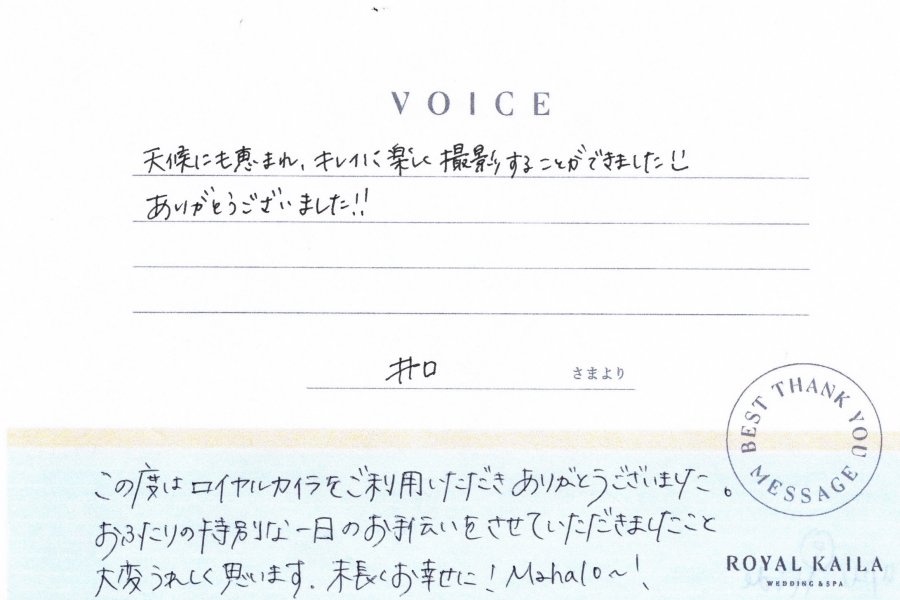 VOICE
天候にも恵まれ、キレイに楽しく撮影することができました!!
ありがとうございました!!
井口
さまより
BEST THANK YOU MESSAGE
この度はロイヤルカイラをご利用いただきありがとうございました。
おふたりの特別な一日のお手伝いをさせていただきましたこと
大変うれしく思います。末長くお幸せに!Mahalo~!
ROYAL KAILA
WEDDING & SPA